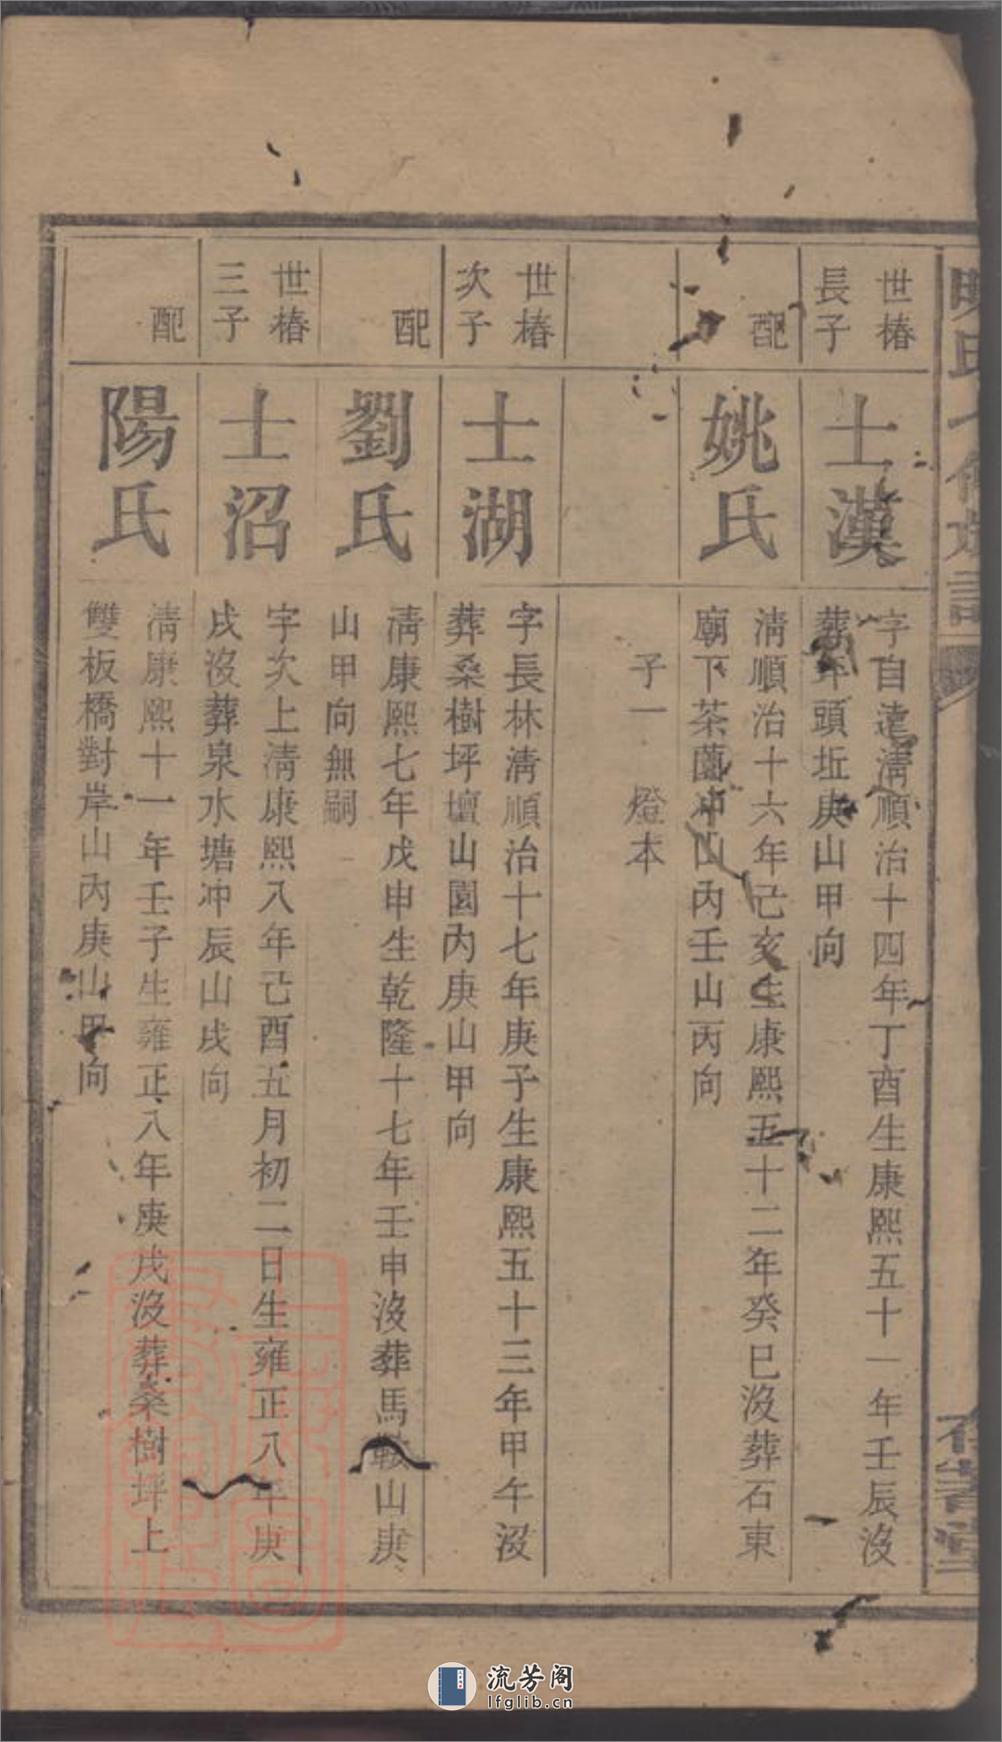 世椿
長子
士漢
字自達淸順治十四年丁酉生康熙五十一年壬辰沒
葬年頭坵庚山甲向
配
姚氏
淸順治十六年己亥生康熙五十二年癸巳沒葬石東
廟下茶園冲山內壬山丙向
子一 燈本
世椿
次子
士湖
字長林淸順治十七年庚子生康熙五十三年甲午沒
葬桑樹坪壇山園內庚山甲向
配
劉氏
淸康熙七年戊申生乾隆十七年壬申沒葬馬鞍山庚
山甲向無嗣
世椿
三子
士沼
字次上淸康熙八年己酉五月初二日生雍正八年庚
戌沒葬泉水塘冲辰山戌向
配
陽氏
淸康熙十一年壬子生雍正八年庚戌沒葬桑樹坪上
雙板橋對岸山內庚山甲向
流芳阁
lfglib.cn